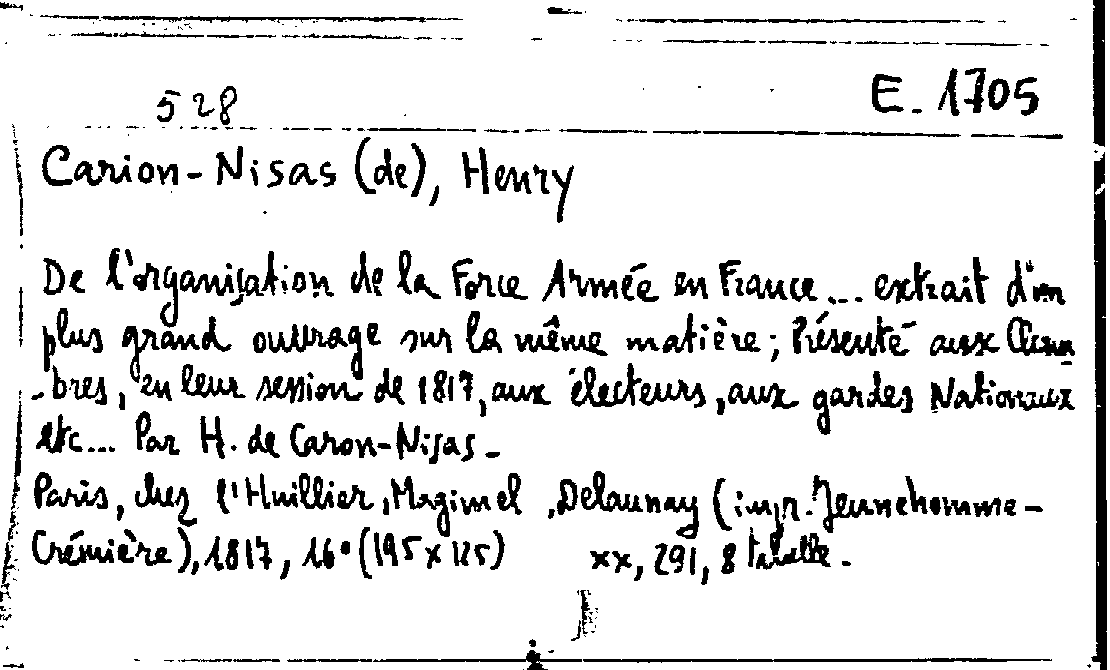 528 E. 1705
Carion-Nisas (de), Henry
De l'organisation de la Force Armée en France... extrait d'un
plus grand ouvrage sur la même matière; Présenté aux Cham
-bres, en leur session de 1817, aux électeurs, aux gardes Nationaux
etc... Par H. de Caron-Nisas-
Paris, chez l'Huillier, Magimel, Delaunay (impr. Jeunehomme-
Crémière), 1817, 16° (195 x 125) xx, 291, 8